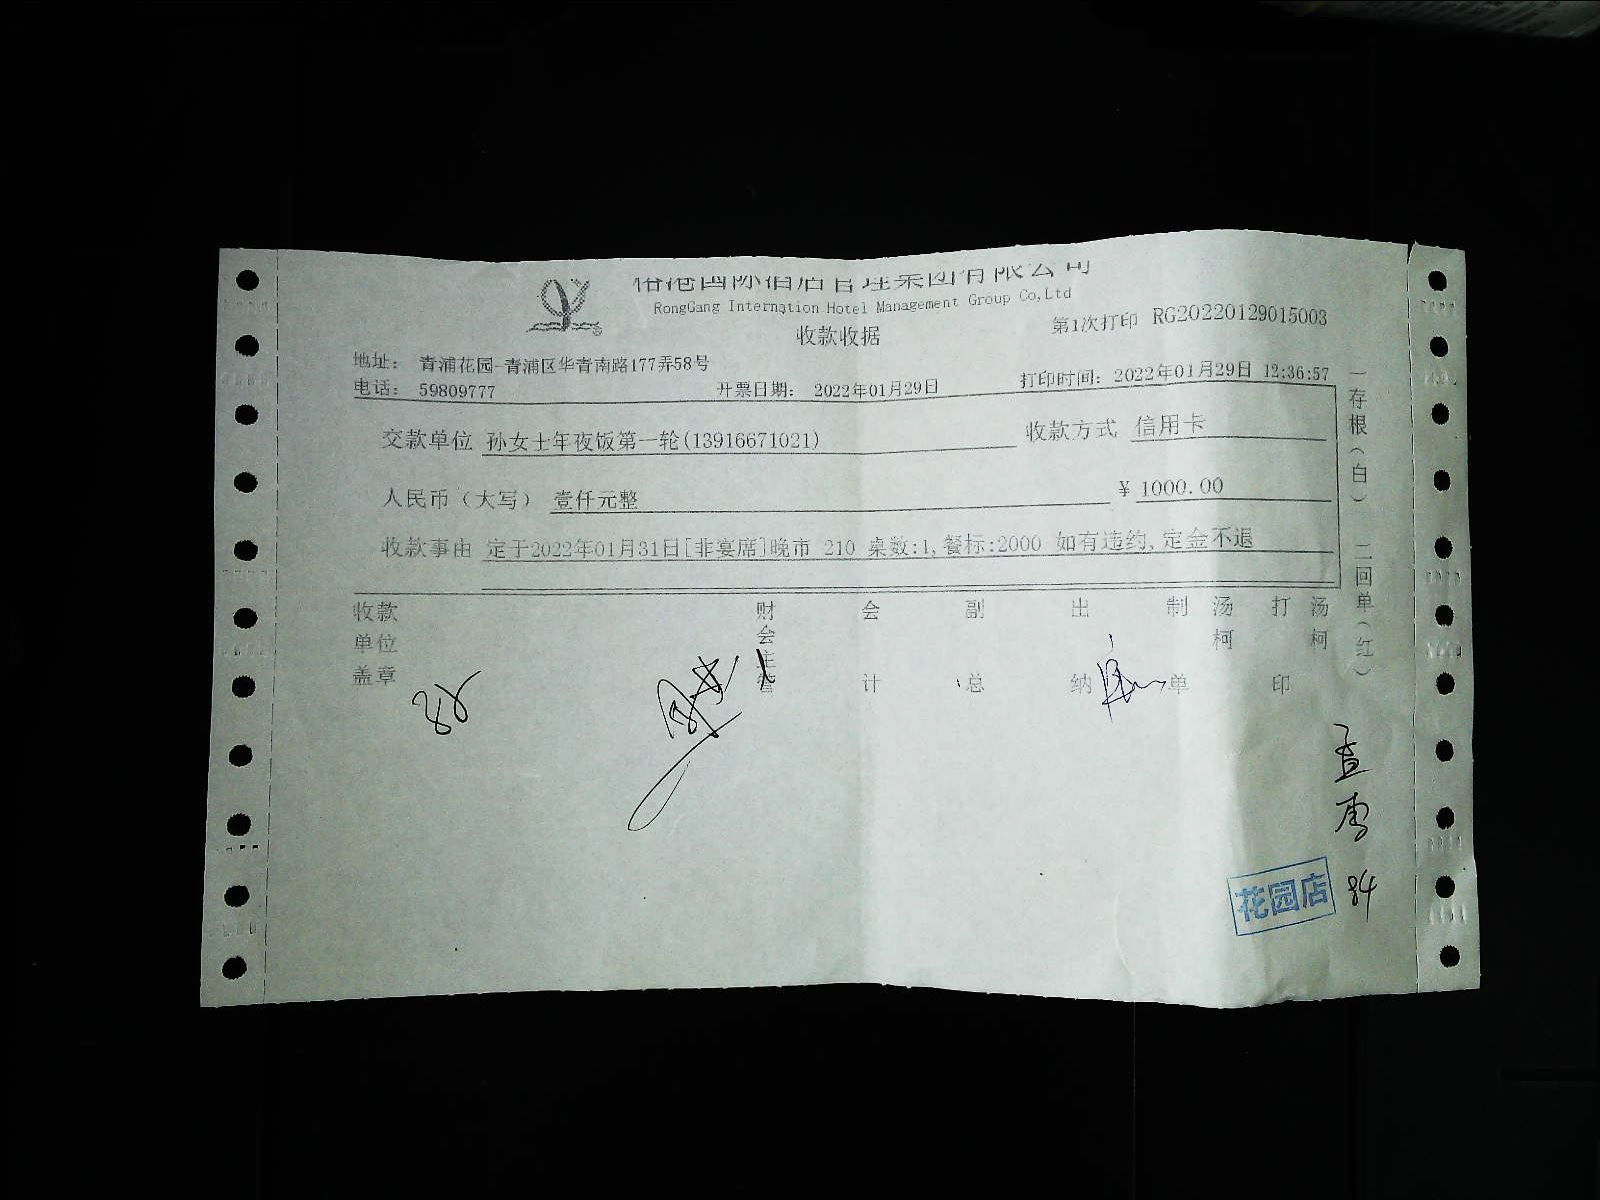 国际酒店管理集团有限公司
RongGang Internation Hotel Management Group Co,Ltd
收款收据
第1次打印 RG20220129015003
地址： 青浦花园-青浦区华青南路177弄58号
电话： 59809777 开票日期： 2022年01月29日 打印时间：2022年01月29日 12:36:57
交款单位 孙女士年夜饭第一轮(13916671021) 收款方式 信用卡
人民币（大写） 壹仟元整 ¥ 1000.00
收款事由 定于2022年01月31日[非宴席]晚市 210 桌数:1,餐标:2000 如有违约,定金不退
收款单位盖章 财会主管 会计 副总 出纳 制单 汤柯 打印 汤柯
一存根（白） 二回单（红）
84
花园店